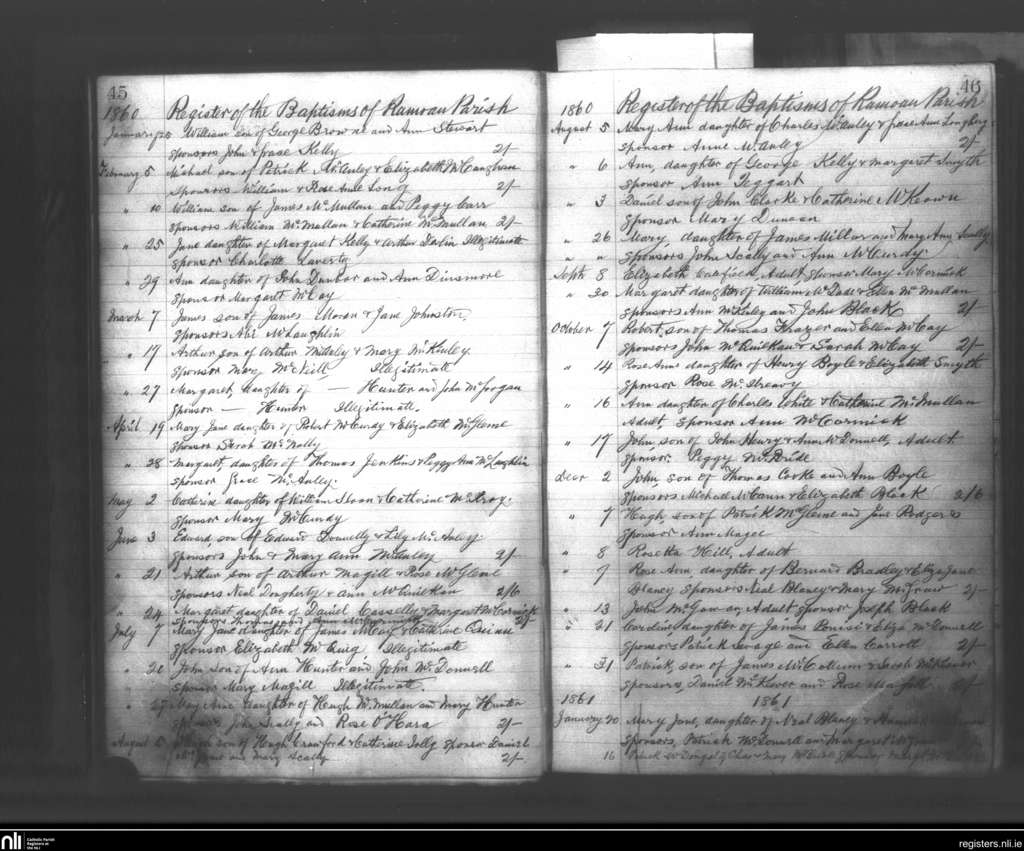 45
1860 Register of the Baptisms of Ramoan Parish
January 25 William son of George Browne and Ann Stewart
sponsors John & Kelly 2/-
February 5 Michael son of Patrick McAuley & Elizabeth McCaughan
sponsors William & Rose Anne Long 2/-
" 10 William son of James McMullan and Peggy Carr
sponsors William McMullan & Catherine McMullan 2/-
" 25 Jane daughter of Margaret Kelly & Arthur Illegitimate
sponsor Charlotte Laverty
" 29 Ann daughter of John Dunbar and Ann Dinsmore
sponsor Margaret McCay
March 7 James son of James Moran & Jane Johnston,
sponsors McLaughlin
" 17 Arthur son of Arthur & Mary McKinley
Sponsor Mary McNeill Illegitimate
" 27 Margaret, daughter of — Hunter and John
sponsor — Hunter Illegitimate.
April 19 Mary Jane daughter of Robert McCurdy & Elizabeth McGlene
sponsor Sarah McNally
" 28 Margaret, daughter of Thomas Jenkins & Peggy Ann McLaughlin
sponsor McAuley.
May 2 Catherine daughter of William Sloan & Catherine McIlroy.
sponsor Mary McCurdy
June 3 Edward, son of Edward Donnelly & Lily McAuley
sponsors John & Mary Ann McAuley 2/-
" 21 Arthur son of Arthur Magill & Rose McGlene
sponsors Neal Dougherty & Ann McQuilkan 2/6
" 24 Margaret daughter of Daniel Casselly & Margaret McCormick
sponsors Thomas and 2/-
July 7 Mary Jane daughter of James McCay & Catherine Quinn
sponsor Elizabeth McQuig, Illegitimate
" 20 John son of Ann Hunter and John McDonnell
sponsor Mary Magill Illegitimate.
" 27 Mary Anne daughter of Hugh McMullan and Mary Hunter
sponsors, John Scally and Rose O'Hara 2/-
August 5 son of Hugh Crawford & Catherine Jolly sponsor Daniel
and Mary Scally 2/-
46
1860 Register of the Baptisms of Ramoan Parish
August 5 Mary Ann daughter of Charles McAuley & Ann
sponsor Anne McAuley 2/-
" 6 Ann, daughter of George Kelly & Margaret Smyth
sponsor Ann Teggart
" 3 Daniel son of John Clarke & Catherine McKeown
sponsor Mary Duncan
" 26 Mary, daughter of James Millar and Mary Ann Scally
" " sponsors John Scally and Ann McCurdy
Septr 8 Elizabeth Canfield, Adult, sponsor Mary McCormick
" 30 Margaret daughter of William McDade & Ellen McMullan
sponsors Ann McKinley and John Black 2/-
October 7 Robert, son of Thomas and Ellen McCay
sponsors John McQuilkan & Sarah McCay 2/-
" 14 Rose Anne daughter of Henry Boyle & Elizabeth Smyth
sponsor Rose McIlreavy
" 16 Ann daughter of Charles White & Catherine McMullan
Adult sponsor Ann McCormick
" 17 John, son of John Henry & Ann McDonnell, Adult
sponsor Peggy McBride
Decr 2 John son of Thomas Cooke and Ann Boyle
sponsors Michael McCann & Elizabeth Black 2/6
" 7 Hugh, son of Patrick McGlene and Jane Rodgers
sponsor Ann Magee
" 8 Rosetta Hill, Adult
" 9 Rose Ann daughter of Bernard Bradley & Eliza Jane
Blaney Sponsors Neal Blaney & Mary 2/-
" 13 John McGowan, Adult sponsor Joseph Black
" 21 Caroline, daughter of James & Eliza McDonnell
sponsors Patrick Savage and Ellen Carroll 2/-
" 31 Patrick, son of James McCollum & Sarah McKeever
sponsors, Daniel McKeever and Rose Magill 2/-
1861 1861
January 20 Mary Jane, daughter of Neal Blaney &
sponsors, Patrick McDonnell and Margaret
16 Patrick of Chas & Mary sponsor
nli Catholic Parish Registers at the NLI
registers.nli.ie